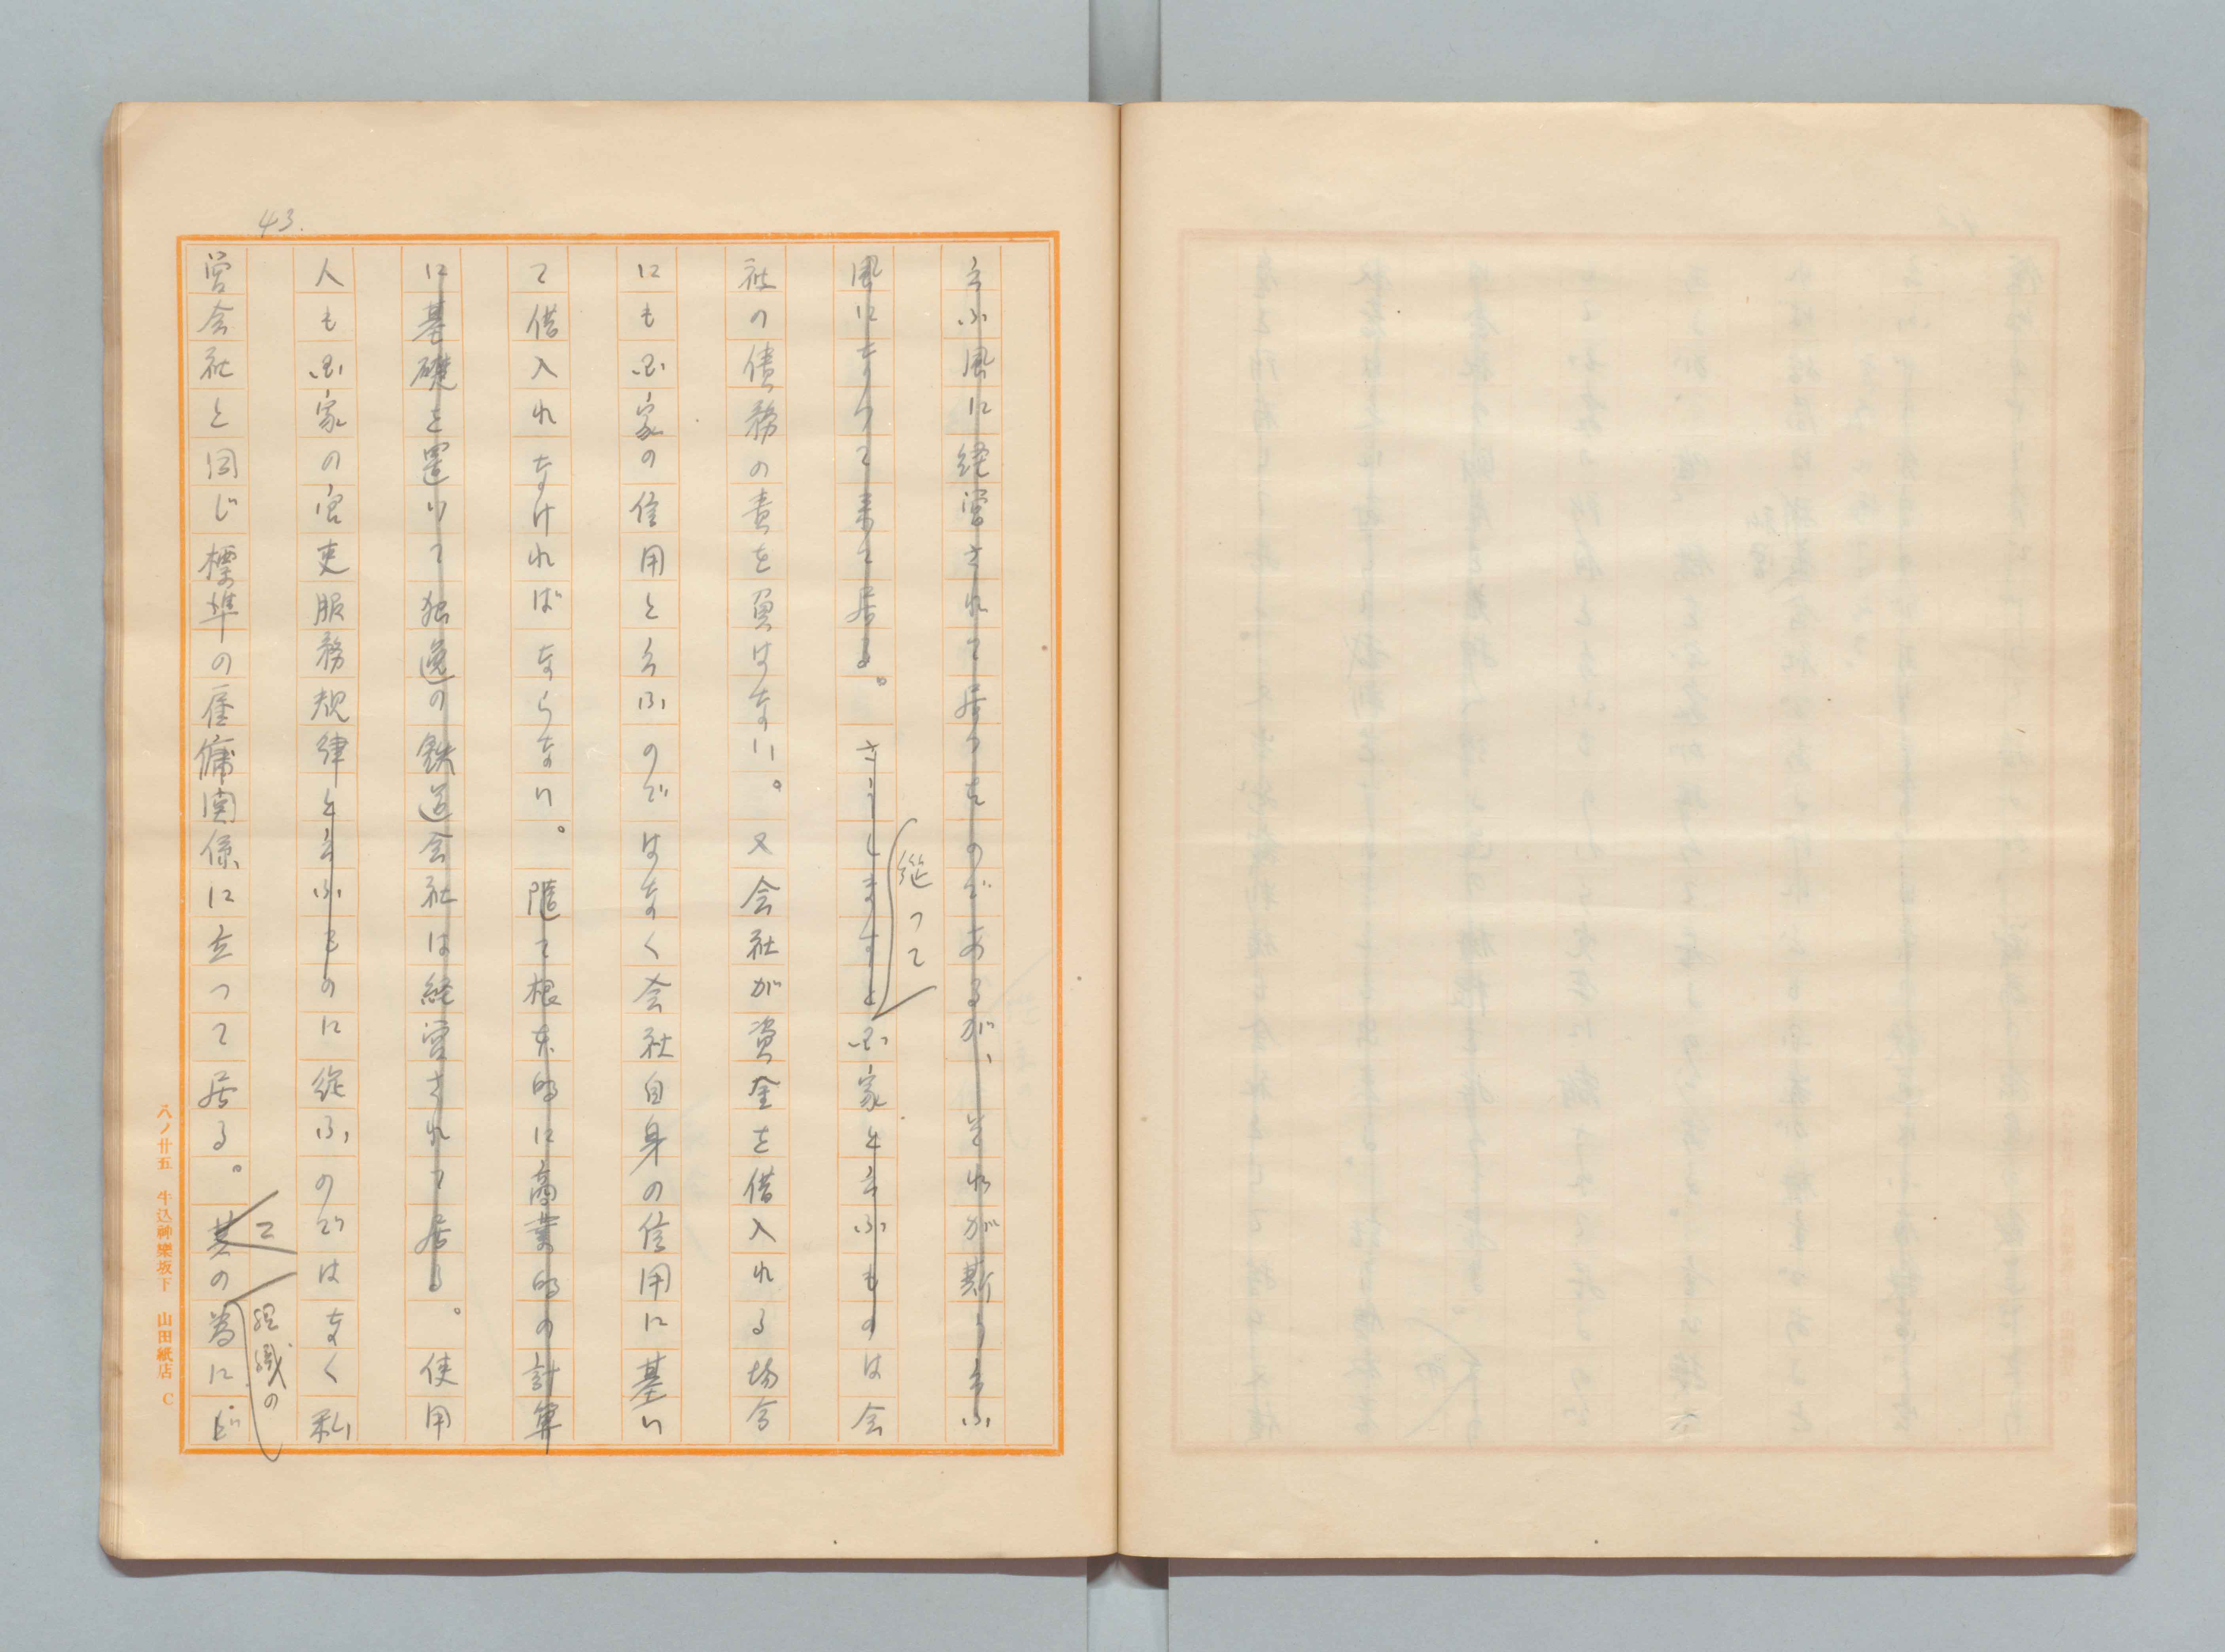 43.
云ふ風に経営されて居つたのであるが、それが斯う云ふ
風になつて来て居る。さうしますと国家と云ふものは会
従つて
社の債務の責を負はない。又会社が資金を借入れる場合
にも国家の信用と云ふのではなく会社自身の信用に基い
て借入れなければならない。随て根本的に商業的の計算
に基礎を置いて独逸の鉄道会社は経営されて居る。使用
人も国家の官吏服務規律と云ふものに従ふのではなく私
営会社と同じ標準の雇傭関係に立つて居る。其の為に
組織の
八ノ廿五 牛込神樂坂下 山田紙店 C